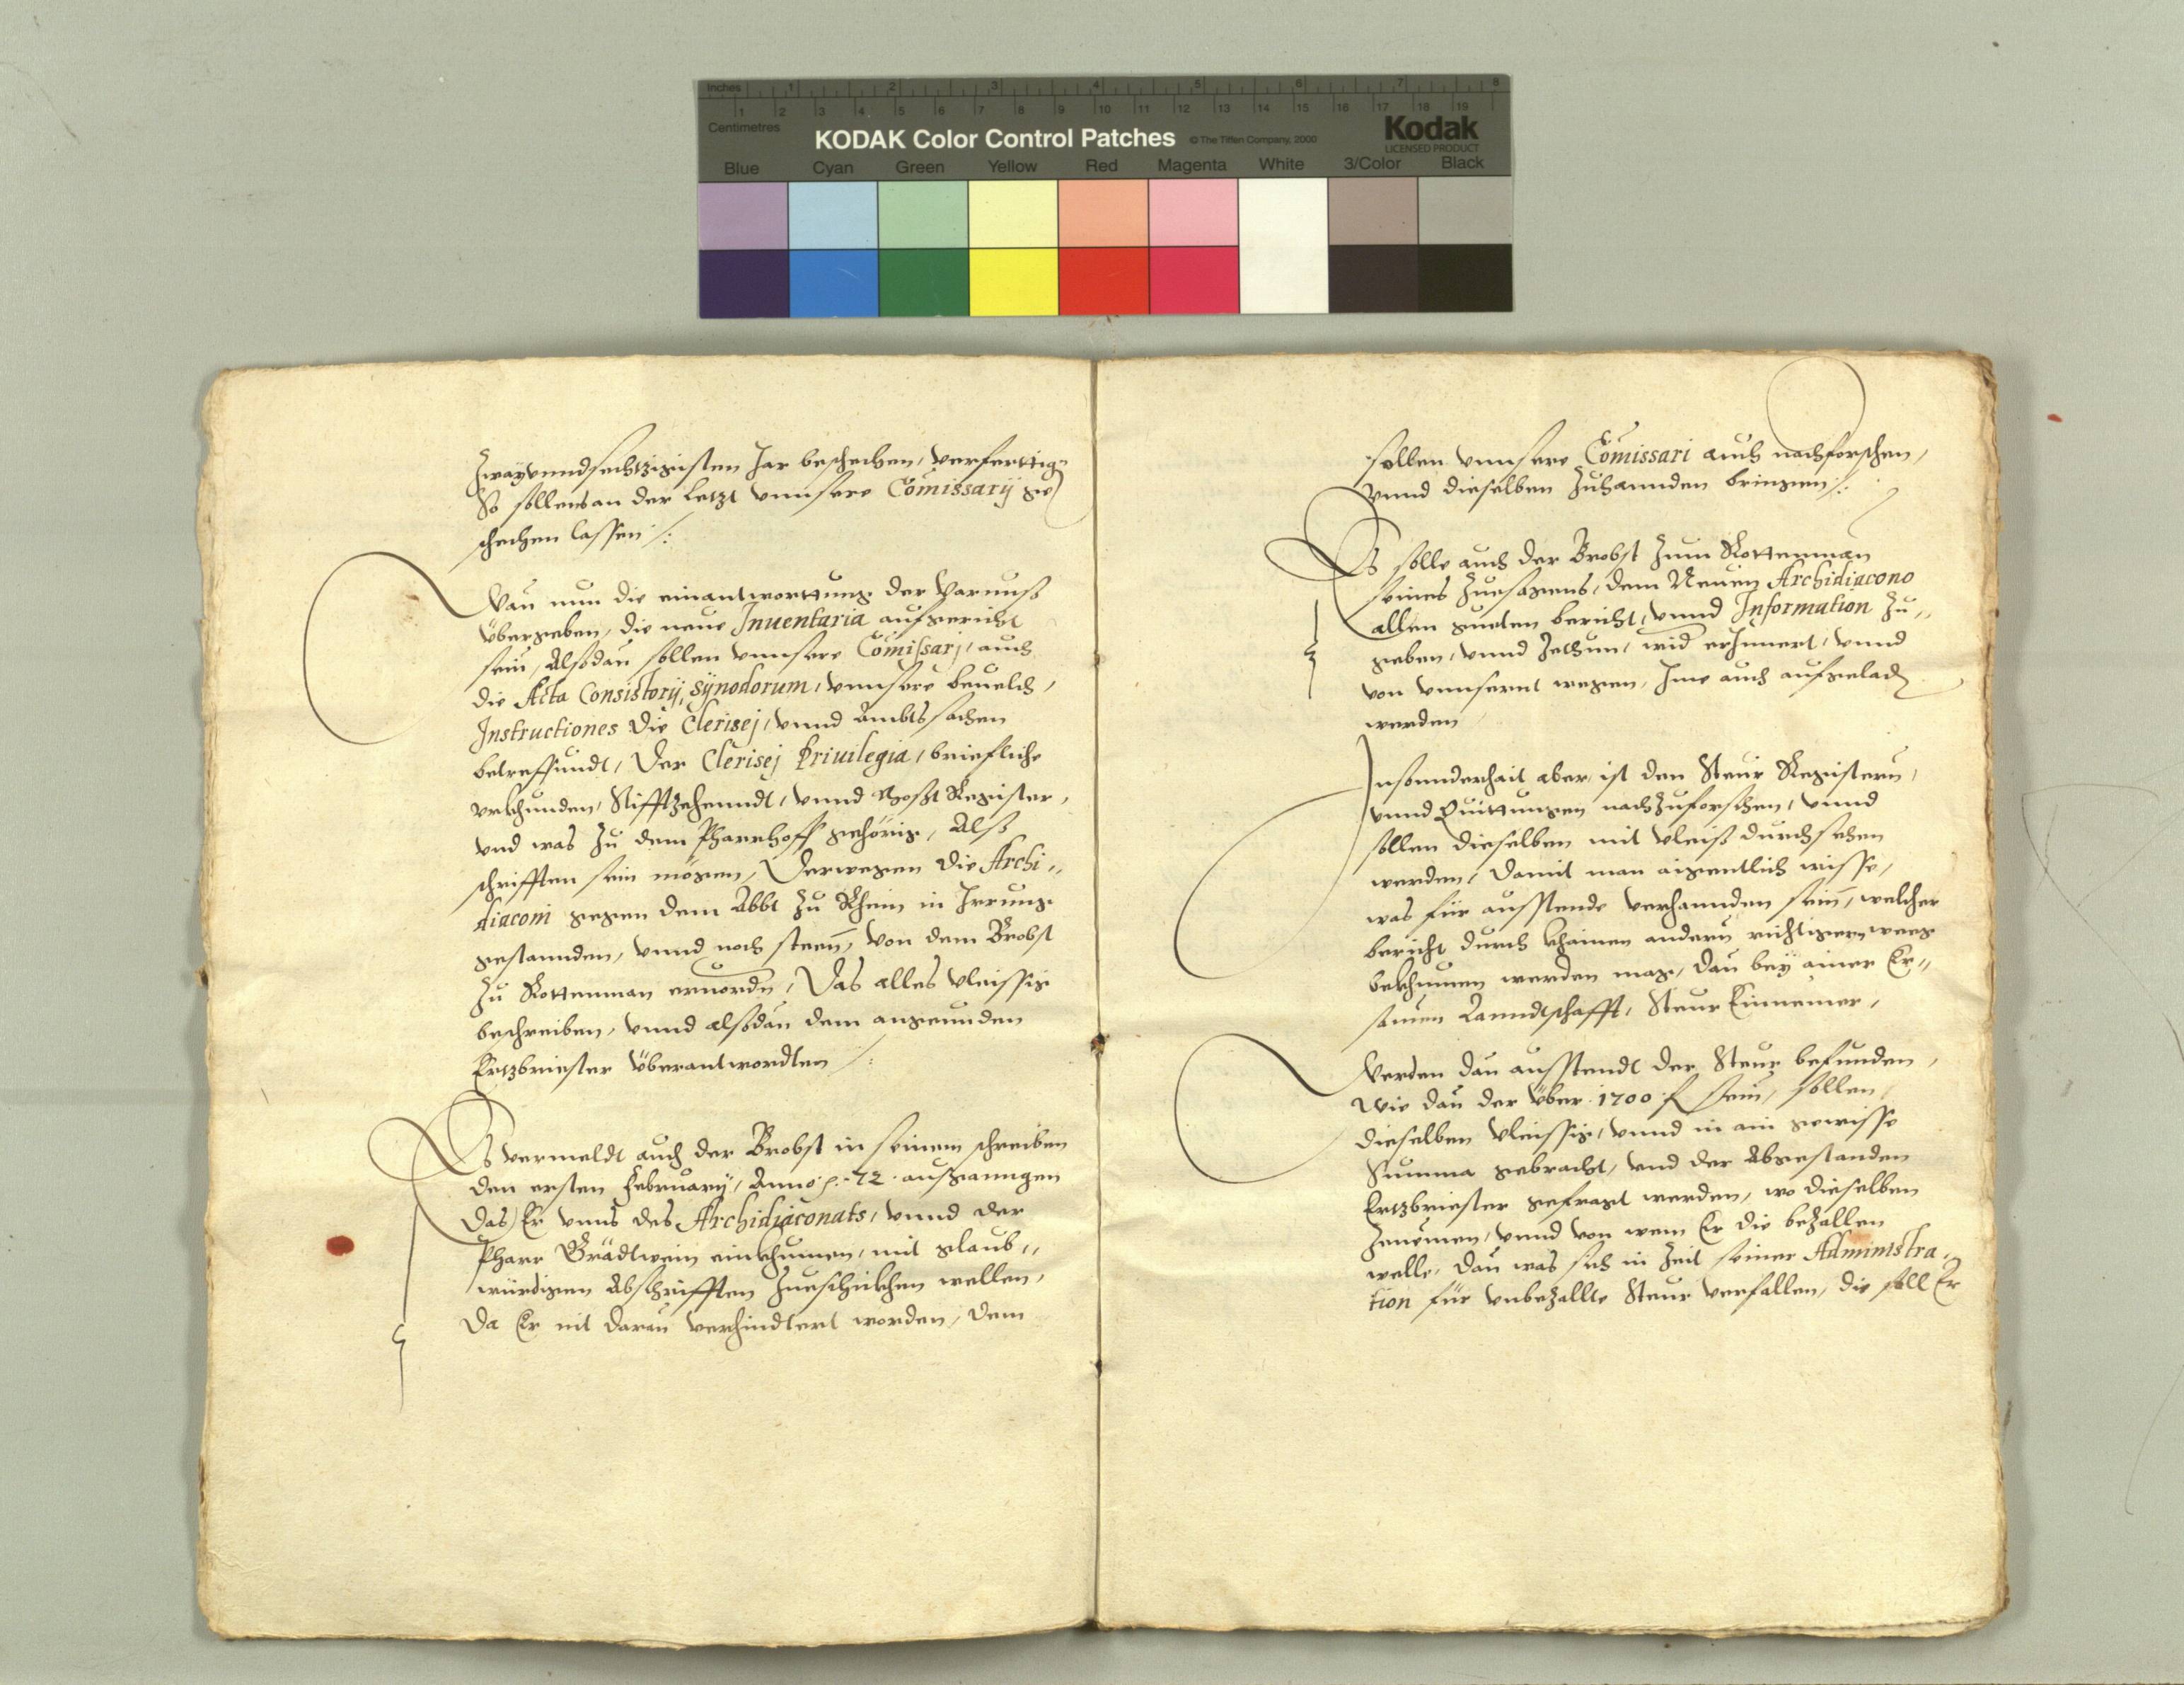 Inches 1 2 3 4 5 6 7 8
1 2 3 4 5 6 7 8 9 10 11 12 13 14 15 16 17 18 19
Centimetres
KODAK Color Control Patches © The Tiffen Company, 2000
Kodak
LICENSED PRODUCT
Blue Cyan Green Yellow Red Magenta White 3/Color Black
Zwayundsechtzigisten Jar beschechen, verferttig
So sollens an der Letzt vnnsere Comissarÿ ge
schechen lassen /:
Wan nun die einantworttung der Varnuß
übergeben, die neue Inuentaria aufgericht
sein, Alsdan sollen vnnsere Comissarj, auch
die Acta Consistorÿ, Sÿnodorum, vnnsere beuelch,
Instructiones die Clerisej, vnnd Ambts sachen
betreffundt, Der Clerisej Priuilegia, briefliche
vrkhunden, Stifftzehenndt, vnnd Most Register,
vnd was zu dem Pharrhoff gehörig, Alß
schrifften sein mögen, Derwegen die Archi„
diaconi gegen dem Abbt zu Rhein in Irrung
gestannden, vnnd noch steen, von dem Brobst
zu Rottenman eruordn, Das alles vleissig
beschreiben, vnnd alßdan dem angeunden
Ertzbriester überantwordten /:
Es vermeldt auch der Brobst in seinem schreiben
den ersten Februarÿ, Anno p. 72 ausganngen
Das Er vnns des Archidiaconats, vnnd der
Pharr Grädtwein einkhumen, mit glaub„
würdigen Abschrifften zueschickhen wellen,
Da Er nit daran verhindtert worden, dem
sollen vnnsere Comissari auch nachforschen,
vnnd dieselben zuhannden bringen /:
Es solle auch der Brobst zum Rottenman
seines Zuesagens, dem Neuen Archidiacono
allen gueten bericht, vnnd Information zu„
geben, vnnd zethun, wid erJnnert, vnnd
von vnnsernt wegen, Jme auch aufgelad
werden
Insonnderhait aber ist den Steur Registern,
vnnd Quittungen nachzuforschen, vnnd
sollen dieselben mit vleiß durchsehen
werden, Damit man aigentlich wisse,
was für ausstende verhannden sein, welcher
bericht durch khainen andern richtigern weeg
bekhumen werden mag, Dan beÿ ainer Er„
samen Lanndtschafft, Steur Einnemer,
Werden dan ausstendt der Steur befunden,
Wie dan der über 1700 f sein, sollen
dieselben vleissig, vnnd in ain gewisse
Summa gebracht, vnd der Abgestanden
Ertzbriester gefragt werden, wo dieselben
zenemen, vnnd von wem Er die bezallen
welle, Dan was sich in Zeit seiner Administra„
tion für vnbezallte Steur verfallen, die soll Er